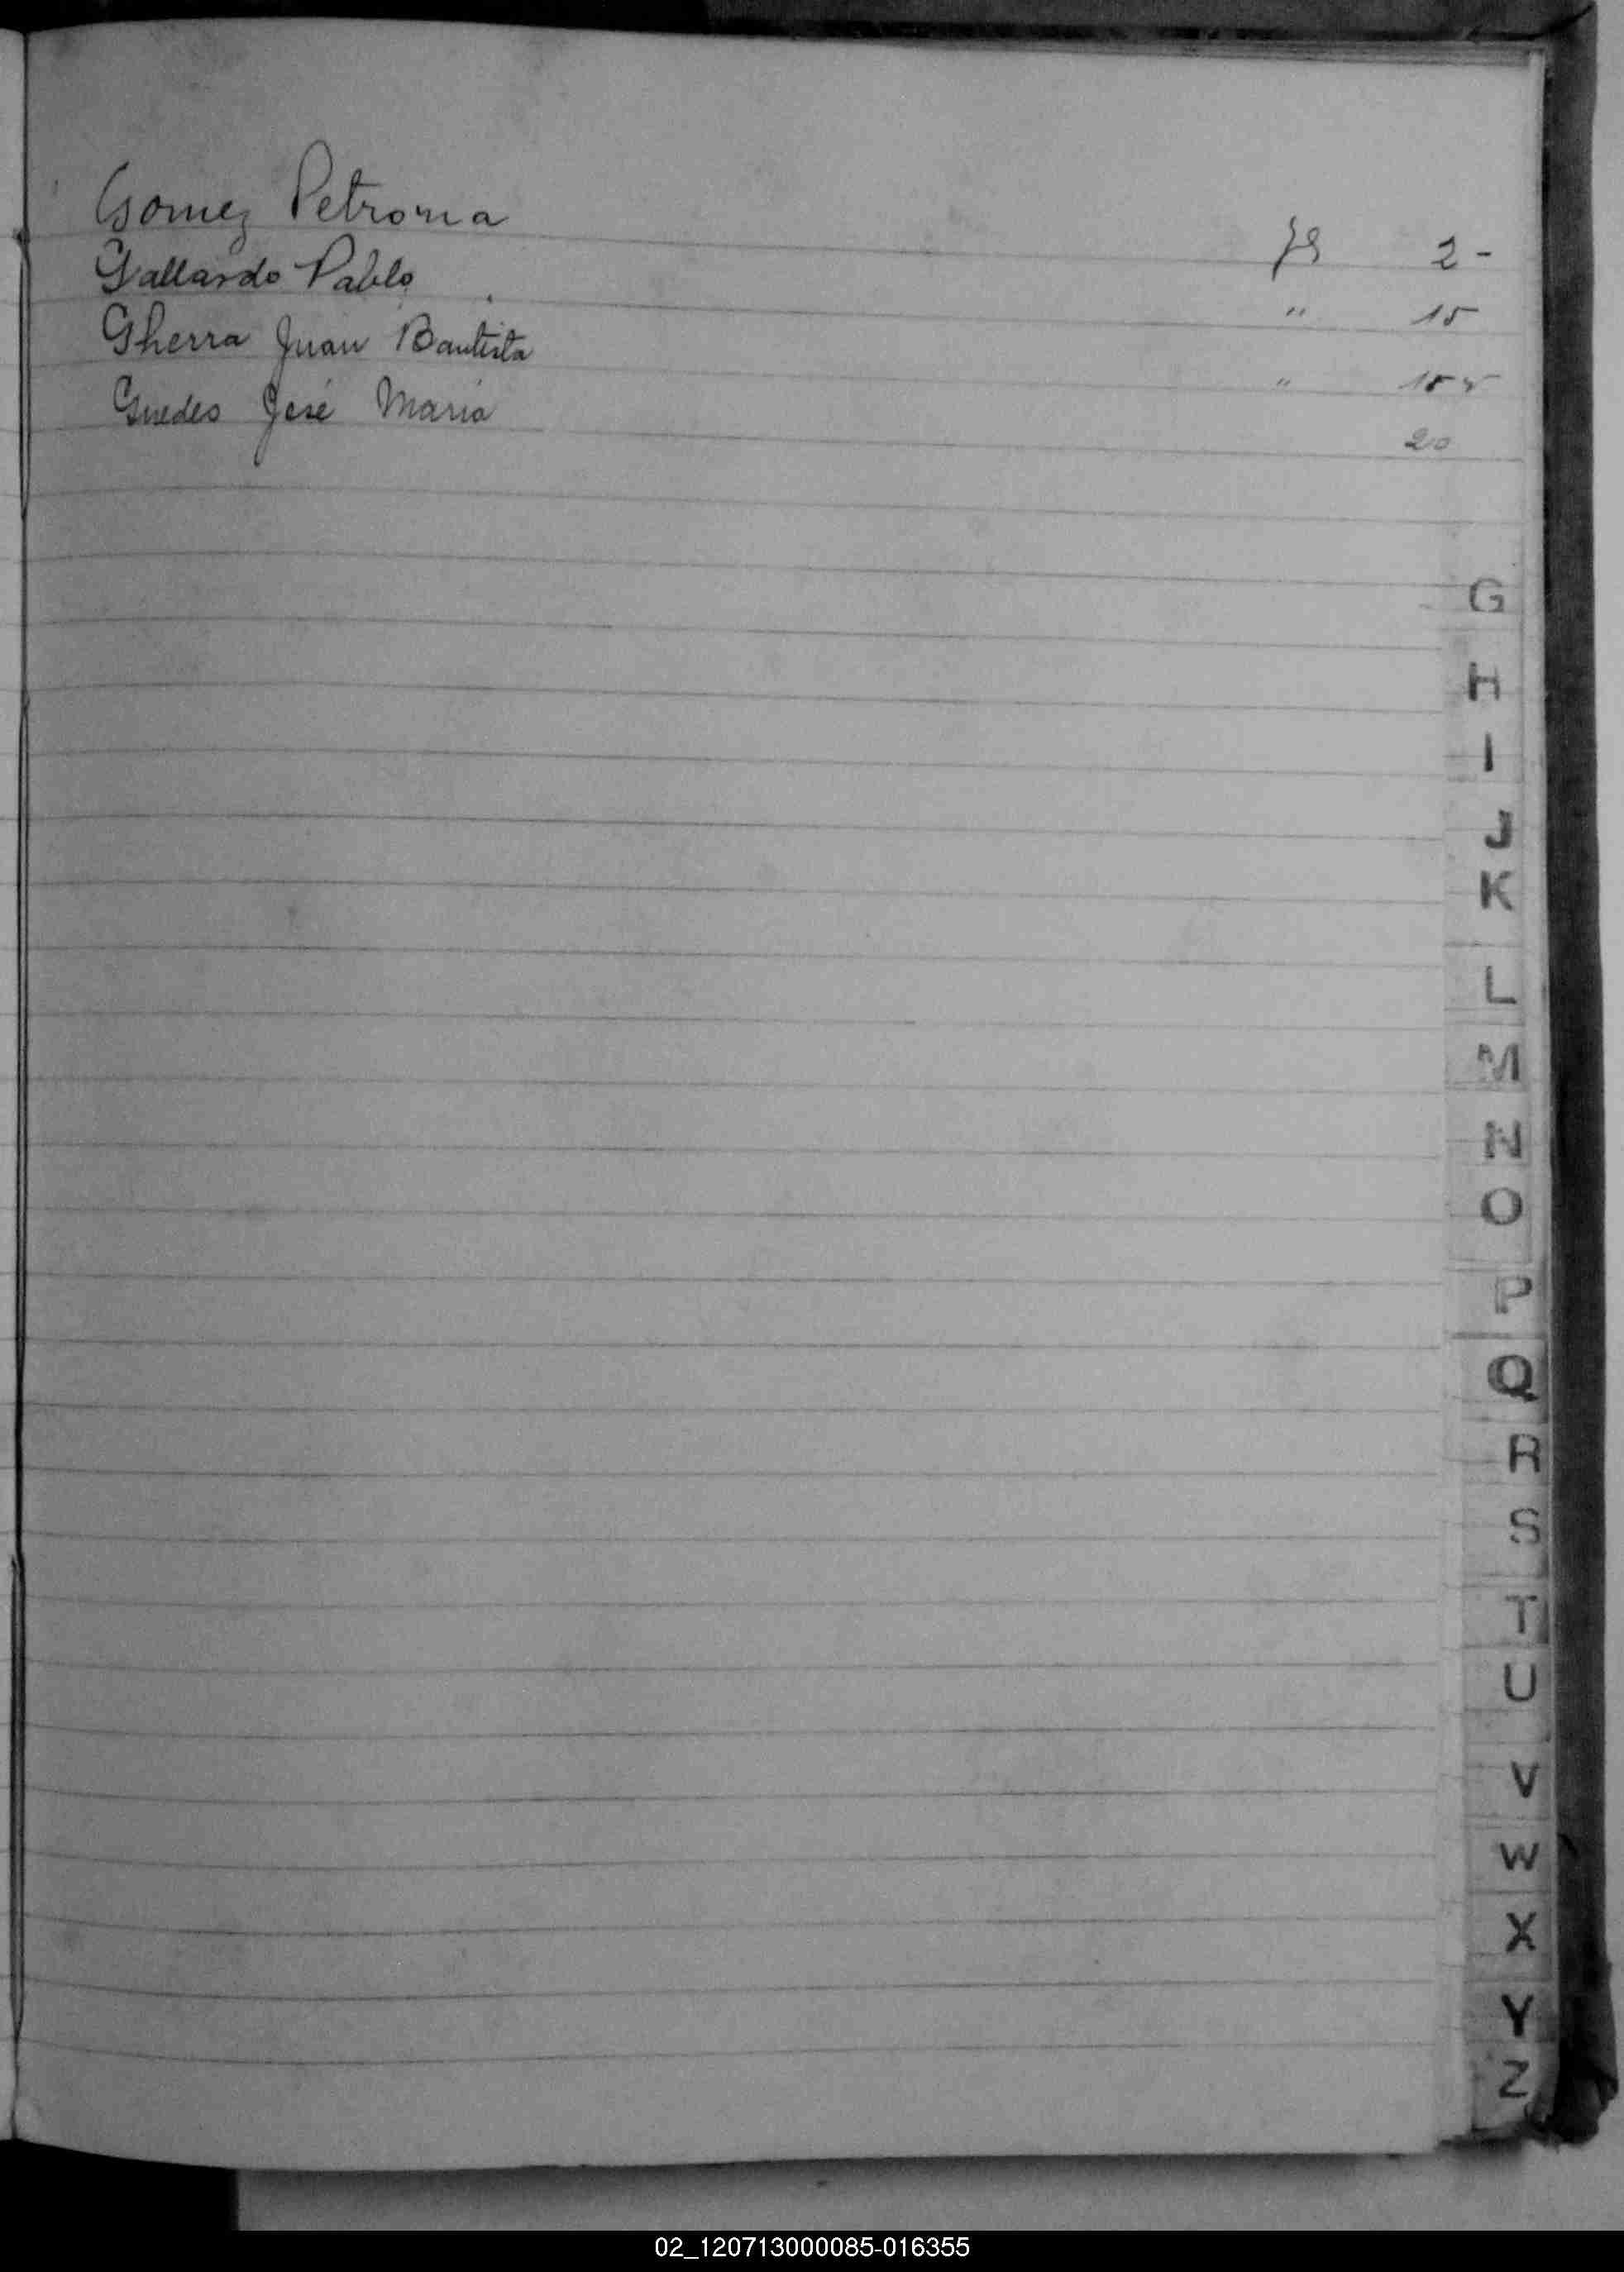 Gomez Petrona fs 2-
Gallardo Pablo " 15
Gherra Juan Bautista "
Guedes José Maria 20
G
H
I
J
K
L
M
N
O
P
Q
R
S
T
U
V
W
X
Y
Z
02_120713000085-016355